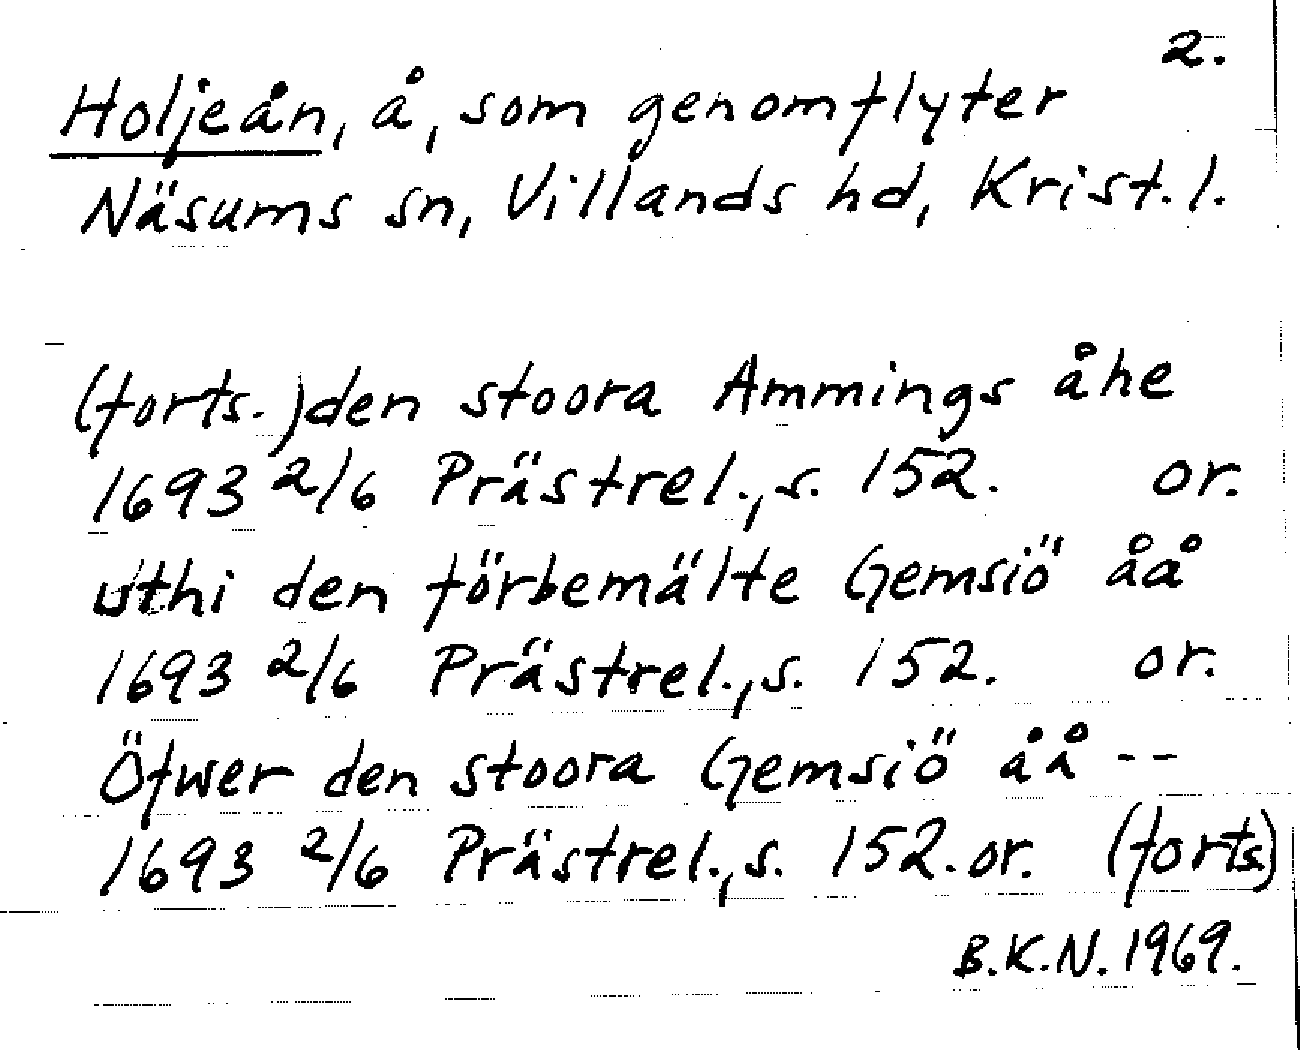 2.
Holjeån, å, som genomflyter
Näsums sn, Villands hd, Krist. l.
(forts.) den stoora Ammings åhe
1693 2/6 Prästrel., s. 152. or.
uthi den förbemälte Gemsiö åå
1693 2/6 Prästrel., s. 152. or.
Öfwer den stoora Gemsiö åå --
1693 2/6 Prästrel., s. 152. or. (forts)
B.K.N. 1969.